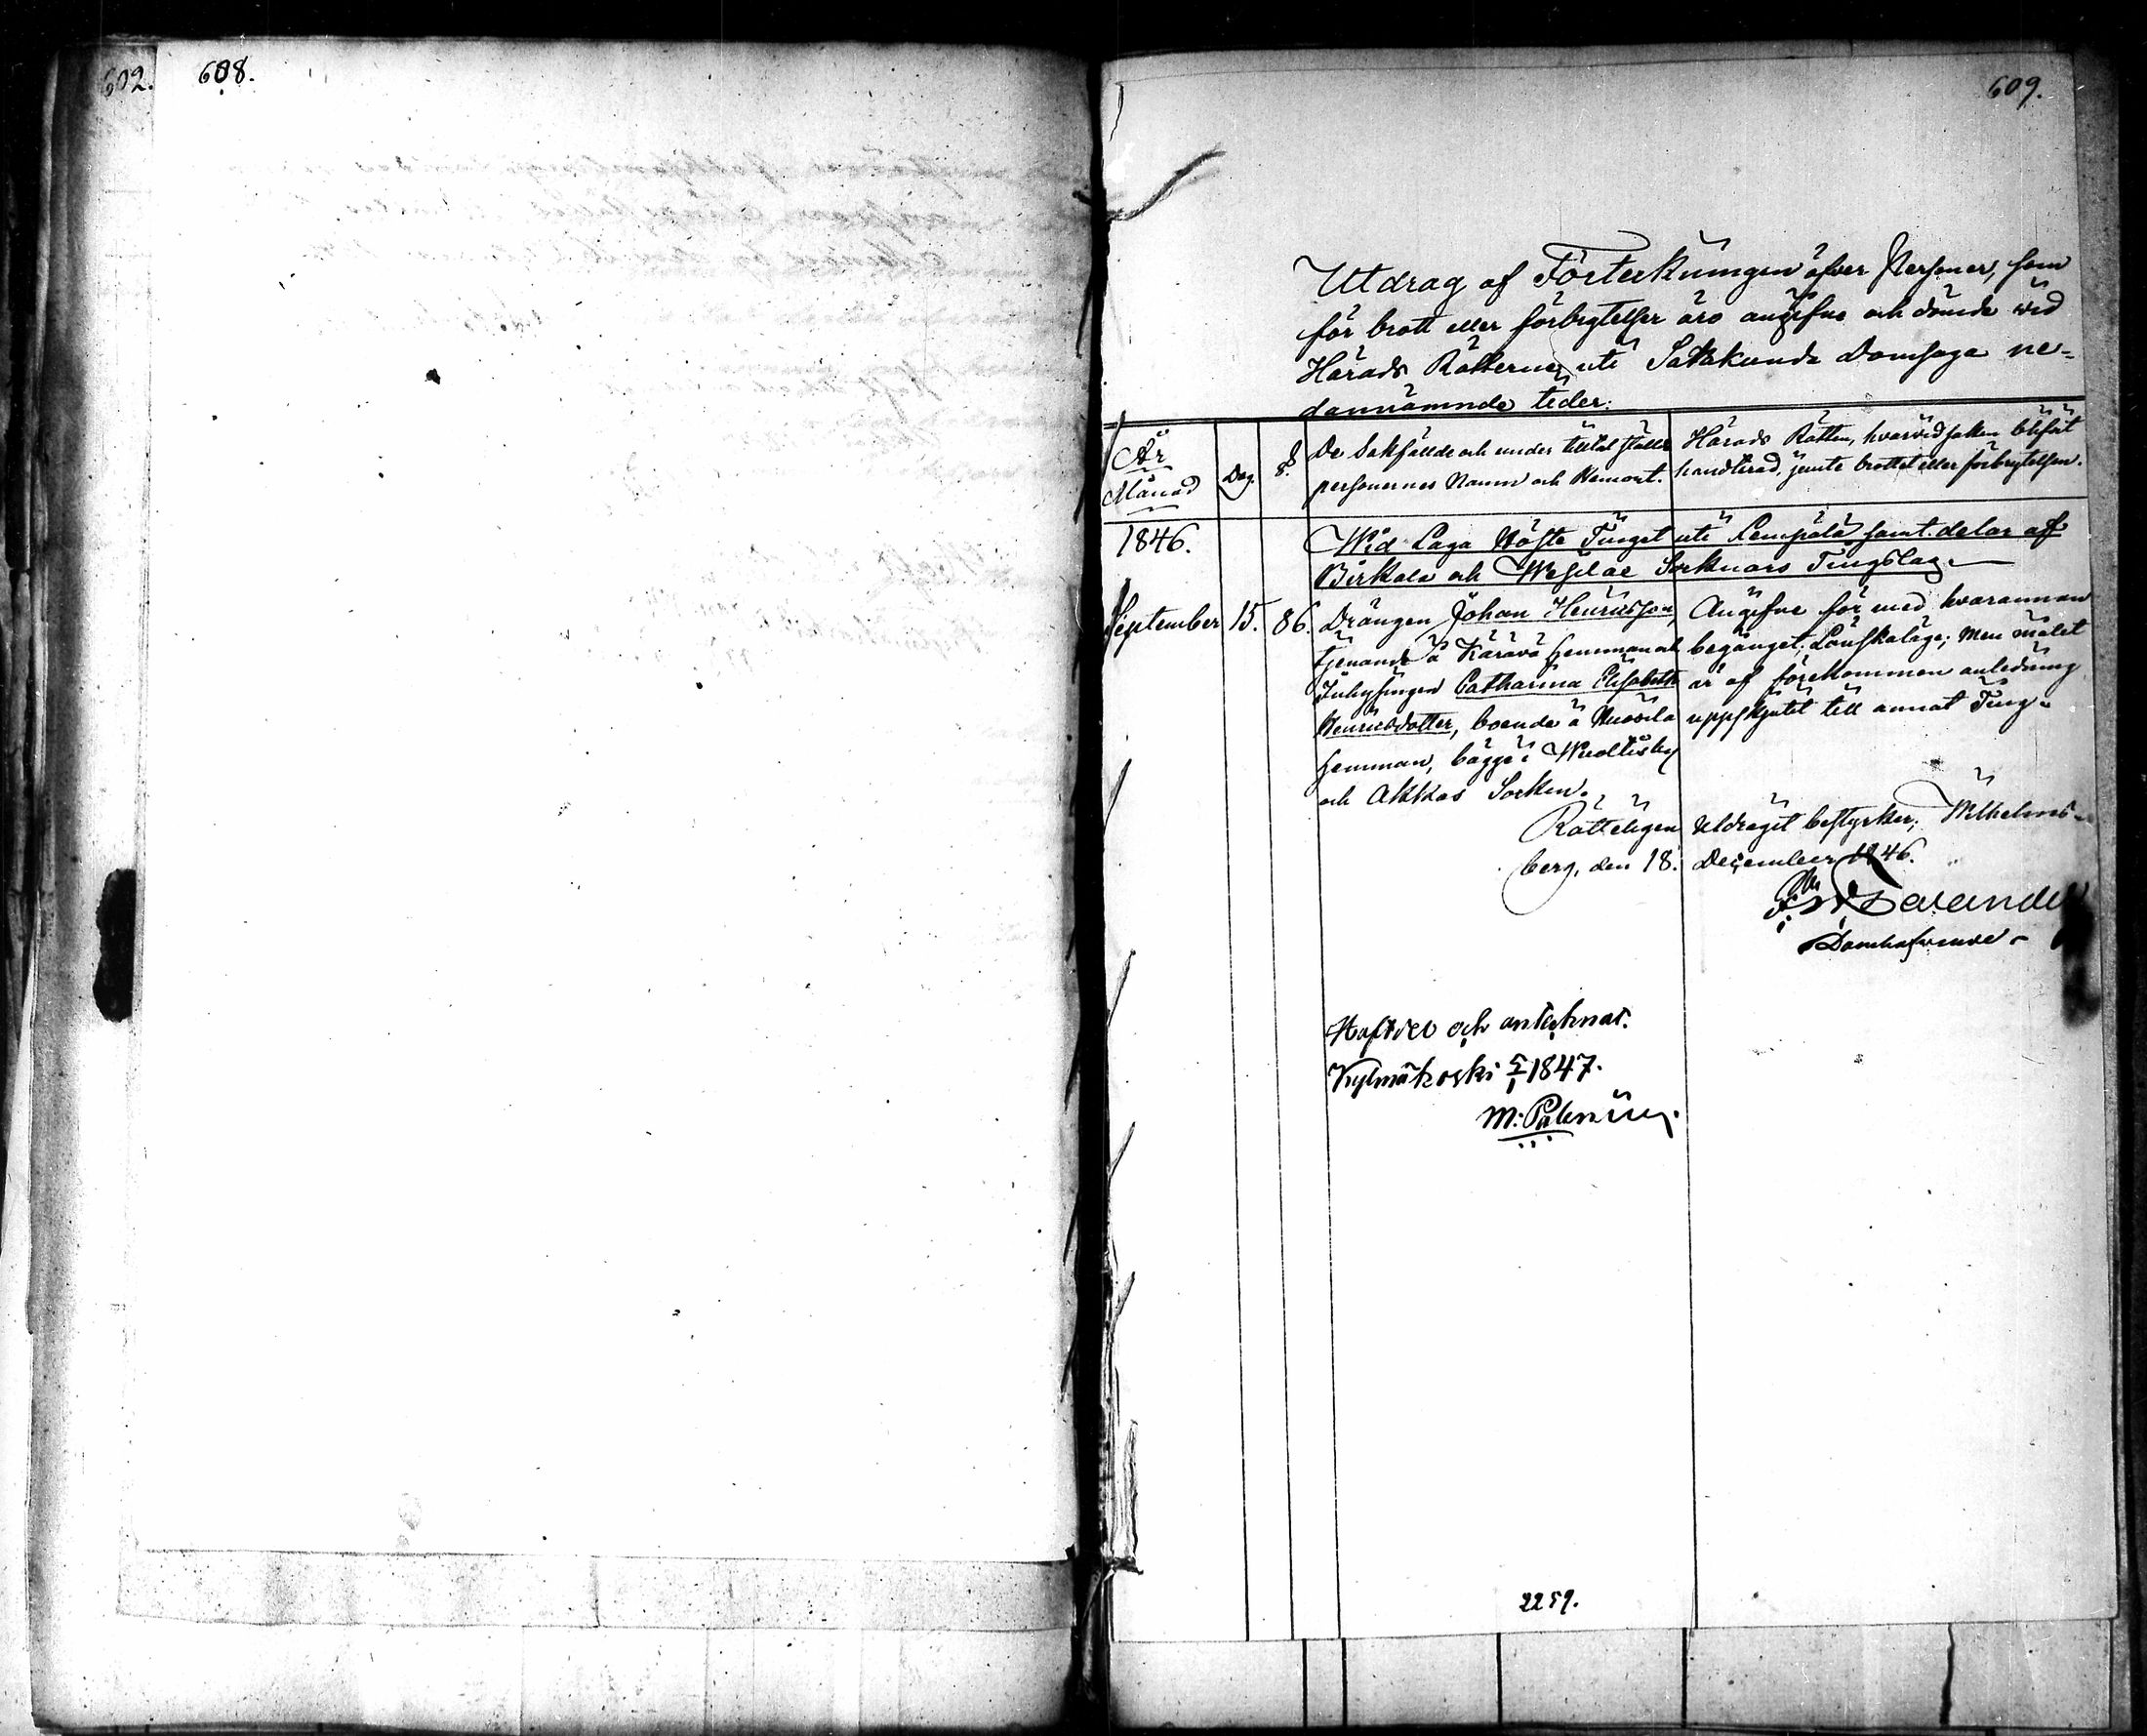 602. 608.
609.
Utdrag af Förteckningen öfver Personer, som
för brott eller förbrytelser äro angifne och dömde wid
Härads Rätterne uti Satakunda Domsaga ne-
dannämnde tider:
År
Månad
Dag.
§
De Sakfällde och under tilltal ställde
personernes Namn och Hemort.
Härads Rätten, hvarvid saken blifvit
handterad, jemte brottet eller förbrytelsen.
1846.
Wid Laga Höste Tinget uti Lempälä samt delar af
Birkala och Wesilax Socknars Tingslag.
September 15. 86.
Drängen Johan Henricsson,
tjenande å Kärävä hemman och
Inhysingen Catharina Elisabeth
Henricsdotter, boende å
hemman, bägge i
och Akkas Socken.
Angifne för med hvarannan
begånget Lönskaläge; Men målet
är af förekommen anledning
uppskjutit till annat Ting.
Rätteligen Utdragit bestyrker; Wilhelms-
berg, den 18. December 1846.
Domhafwande
och antecknat.
Kylmäkoski 1847.
M: Palmén
2259.